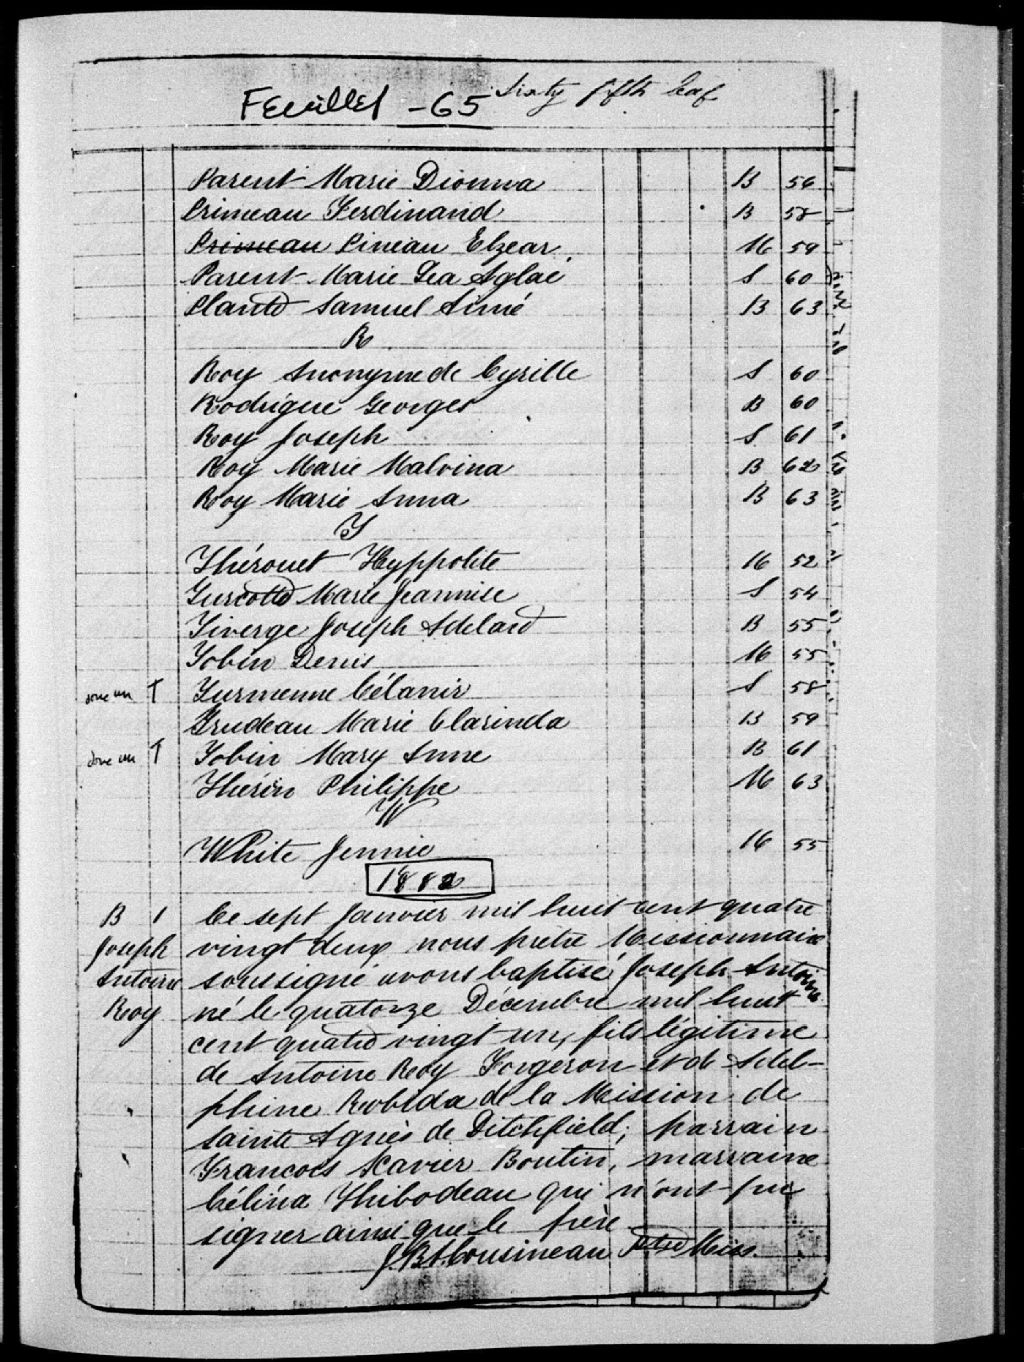 Feuillet -65 Sixty fifth leaf
Parent Marie Dionna B 56
Primeau Ferdinand B 58
Primeau Pineau Elzear M 59
Parent Marie Lea Aglaé S 60
Plante Samuel Aimé B 63
R
Roy Anonyme de Cyrille S 60
Rodrigue Georges B 60
Roy Joseph S 61
Roy Marie Malvina B 62
Roy Marie Anna B 63
T
Thérouet Hyppolite M 52
Turcotte Marie Jeannise S 54
Tiverge Joseph Adelard B 55
Tobin Denis M 55
T Turmenne Célanir S 58
Trudeau Marie Clarinda B 59
T Tobin Mary Anne B 61
Thérin Philippe M 63
W
White Jennie M 55
1882
B 1 Ce sept Janvier mil huit cent quatre
Joseph vingt deux nous pretre Missionnaire
Antoine soussigné avons baptisé Joseph Antoine
Roy né le quatorze Décembre mil huit
cent quatre vingt un, fils légitime
de Antoine Roy Forgeron et de Adel-
phine Robida de la Mission de
Sainte Agnès de Ditchfield; parrain
Francois Xavier Boutin, marraine
Célina Thibodeau qui n'ont pu
signer ainsi que le père
J. Bt. Cousineau Ptre Miss